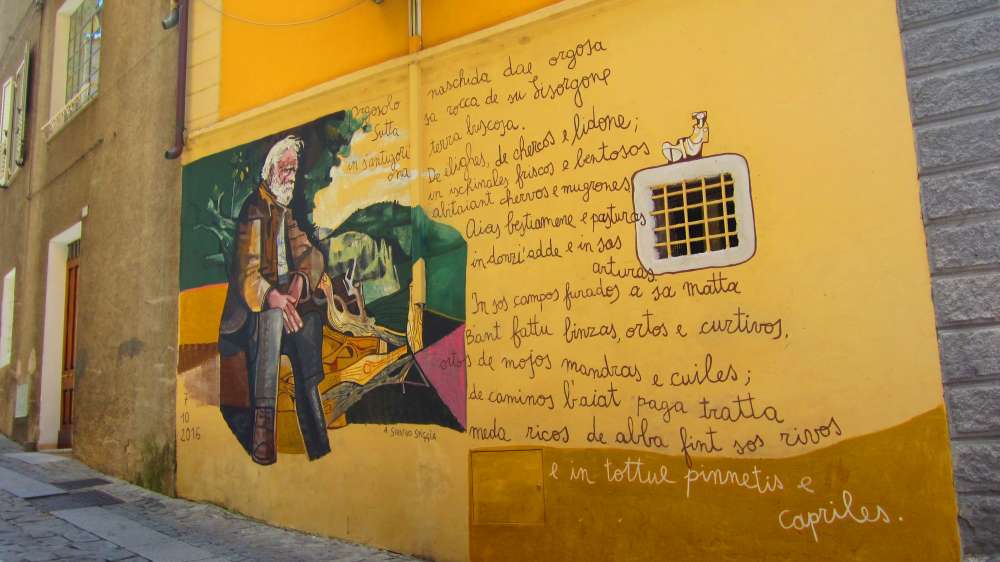 Orgosolo
Sutta
in s'antigori
ona
naschida dae orgosa
sa rocca de su Lisorgone
terra buscosa.
De elighes, de chercos e lidone;
in ischinales friscos e bentosos
abitaiant chervos e mugrones
Aias bestiamene e pasturas
in donzi'adde e in sos
arturas.
In sos campos furados a sa matta
B'ant fattu binzas, ortos e curtivos,
ortos de mojos mandras e cuiles;
de caminos b'aiat paga tratta
meda ricos de abba fint sos rivos
e in tottue pinnetis e
capriles.
7
10
2016
A